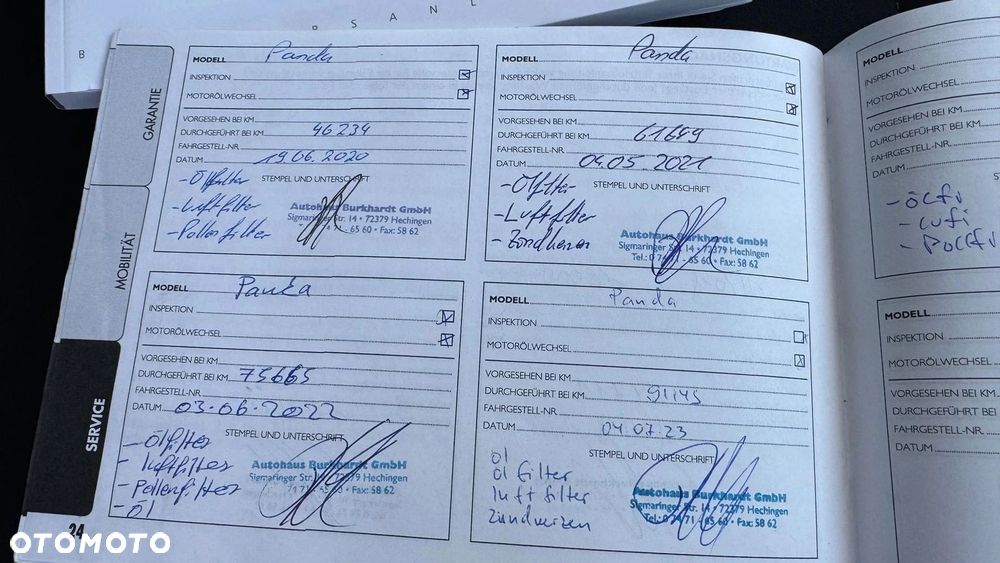 B O R D S A N L
GARANTIE
MOBILITÄT
SERVICE
MODELL Panda
INSPEKTION
MOTORÖLWECHSEL
VORGESEHEN BEI KM
DURCHGEFÜHRT BEI KM 46234
FAHRGESTELL-NR.
DATUM 19.06.2020
STEMPEL UND UNTERSCHRIFT
- Ölfilter
- Luftfilter
- Pollenfilter
Autohaus Burkhardt GmbH
Sigmaringer Str. 14 • 72379 Hechingen
71 - 65 60 • Fax: 58 62
MODELL Panda
INSPEKTION
MOTORÖLWECHSEL
VORGESEHEN BEI KM
DURCHGEFÜHRT BEI KM 61649
FAHRGESTELL-NR.
DATUM 04.05.2021
STEMPEL UND UNTERSCHRIFT
- Ölfilter
- Luftfilter
- Zündkerzen
Autohaus Burkhardt GmbH
Sigmaringer Str. 14 • 72379 Hechingen
Tel.: 0 74 71 - 65 60 • Fax: 58 62
MODELL Panda
INSPEKTION
MOTORÖLWECHSEL
VORGESEHEN BEI KM
DURCHGEFÜHRT BEI KM 75665
FAHRGESTELL-NR.
DATUM 03.06.2022
STEMPEL UND UNTERSCHRIFT
- Ölfilter
- Luftfilter
- Pollenfilter
- Öl
Autohaus Burkhardt GmbH
Sigmaringer Str. 14 • 72379 Hechingen
74 71 - 65 60 • Fax: 58 62
MODELL Panda
INSPEKTION
MOTORÖLWECHSEL
VORGESEHEN BEI KM
DURCHGEFÜHRT BEI KM 91145
FAHRGESTELL-NR.
DATUM 04.07.23
STEMPEL UND UNTERSCHRIFT
Öl
Öl filter
luft filter
Zündkerzen
Autohaus Burkhardt GmbH
Sigmaringer Str. 14 • 72379 Hechingen
Tel.: 0 74 71 - 65 60 • Fax: 58 62
24
MODELL
INSPEKTION
MOTORÖLWECHSEL
VORGESEHEN BEI KM
DURCHGEFÜHRT BEI
FAHRGESTELL-NR.
DATUM
- ölfi
- Lufi
- Pollfi
MODELL
INSPEKTION
MOTORÖLWECHSEL
VORGESEHEN BEI KM
DURCHGEFÜHRT BEI
FAHRGESTELL-NR.
DATUM
OTOMOTO